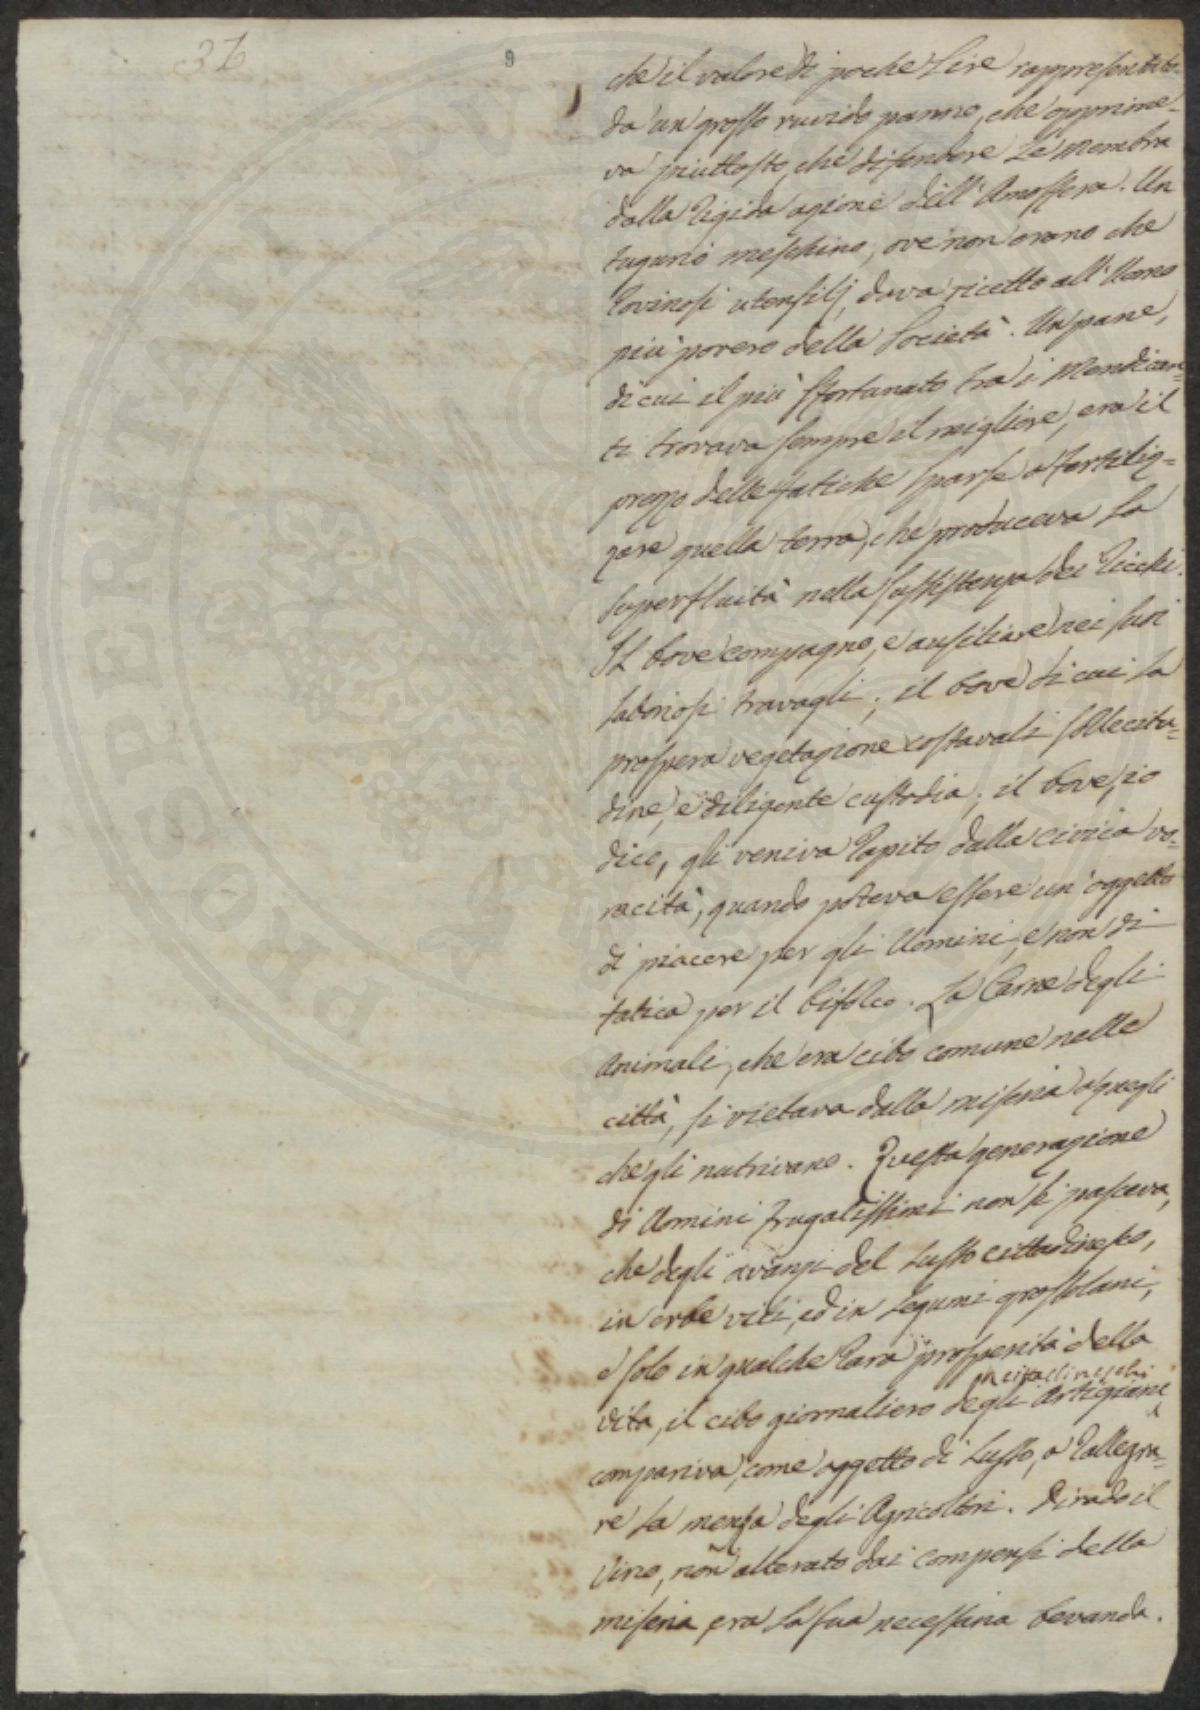 37
9
che il valore di poche Lire rappresentato
da un grosso ruvido panno, che opprime-
va piuttosto, che difendere Le Membra
dalla Rigida azione dell'Amosfera. Un
tugurio meschino, ove non erano che
Rovinosi utensilj, dava ricetto all'Uomo
più povero della Società. Un pane,
di cui il più sfortunato tra i Mendican=
ti trovava sempre il migliore, era il
prezzo delle fatiche sparse a fertiliz=
zare quella terra, che produceva La
superfluità nella sussistenza dei Ricchi.
Il bove compagno, e ausiliare nei suoi
laboriosi travagli; il bove di cui La
prospera vegetazione costavali sollecitu=
dine, e diligente custodia; il bove, io
dico, gli veniva Rapito dalla civica vo=
racità, quando poteva essere un'oggetto
di piacere per gli Uomini, e non di
fatica per il bifolco. La Carne degli
Animali, che era cibo comune nelle
città, si vietava dalla miseria a quegli
che gli nutrivano. Questa generazione
di Uomini frugalissimi non si pasceva,
che degli avanzi del Lusso cittadinesco,
in erbe vili, ed in Legumi grossolani,
e solo in qualche Rara prosperità della
cittadineschi
vita, il cibo giornaliero degli Artigiani
compariva, come oggetto di Lusso, a Rallegra=
re La menza degli Agricoltori. Di rado il
Vino, non alterato dai compensi della
miseria era La sua necessaria bevanda.
PROSPERITÀ